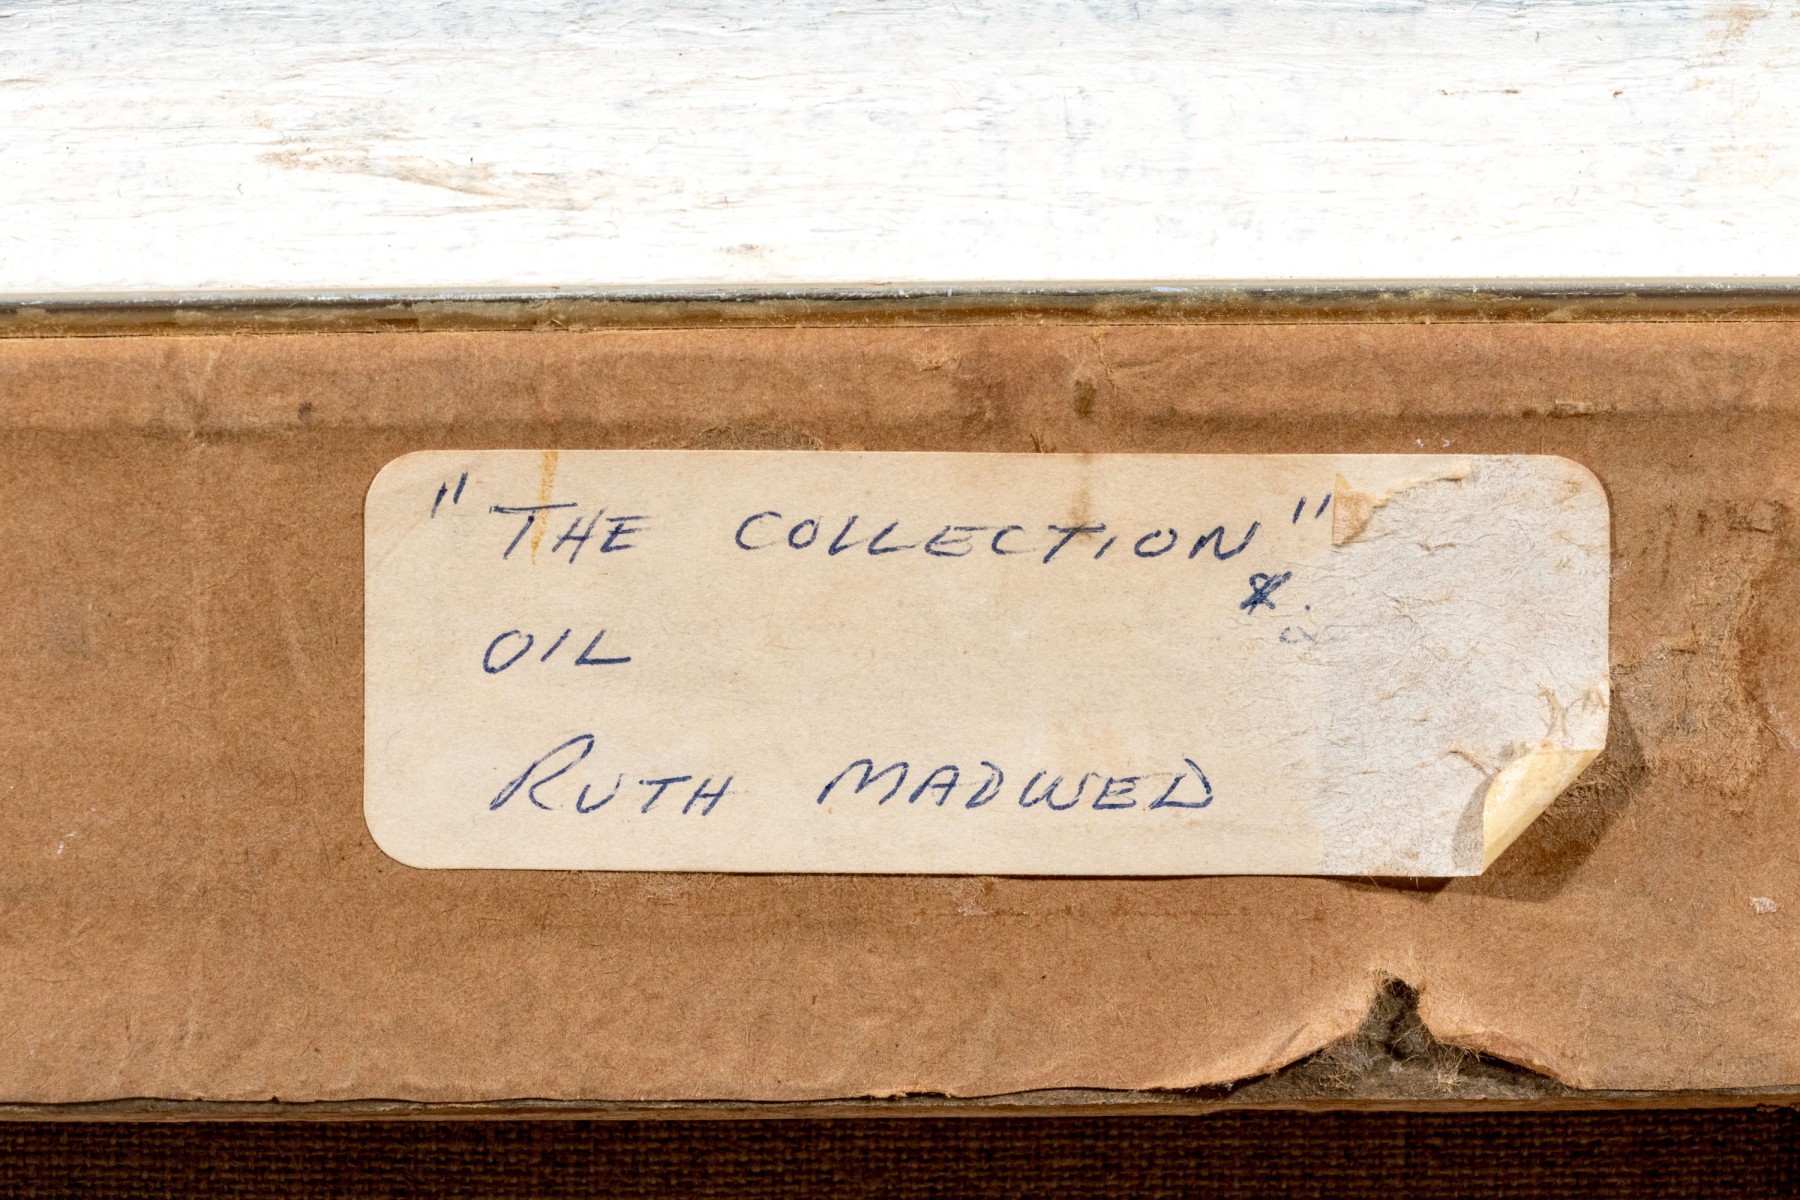 "THE COLLECTION"
OIL
RUTH MADWED